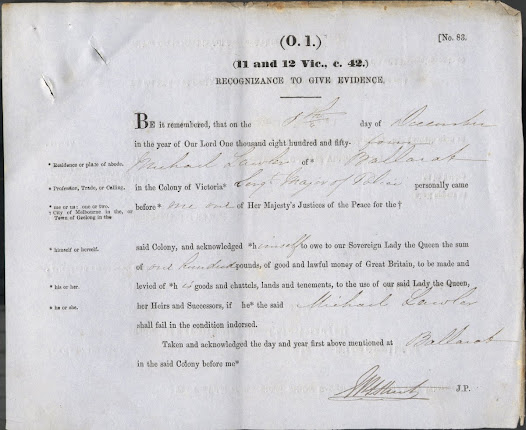 (O. 1.)
[No. 83.
(11 and 12 Vic., c. 42.)
RECOGNIZANCE TO GIVE EVIDENCE.
BE it remembered, that on the 8th day of December
in the year of Our Lord One thousand eight hundred and fifty-four
* Residence or place of abode.
Michael Lawler of* Ballarat
* Profession, Trade, or Calling.
in the Colony of Victoria* Sergt Major of Police personally came
* me or us: one or two.
† City of Melbourne in the, or Town of Geelong in the
before* me one of Her Majesty's Justices of the Peace for the †
* himself or herself.
said Colony, and acknowledged *himself to owe to our Sovereign Lady the Queen the sum
of one hundred pounds, of good and lawful money of Great Britain, to be made and
* his or her.
levied of *his goods and chattels, lands and tenements, to the use of our said Lady the Queen,
* he or she.
her Heirs and Successors, if he* the said Michael Lawler
shall fail in the condition indorsed.
Taken and acknowledged the day and year first above mentioned at Ballarat
in the said Colony before me*
J.P.